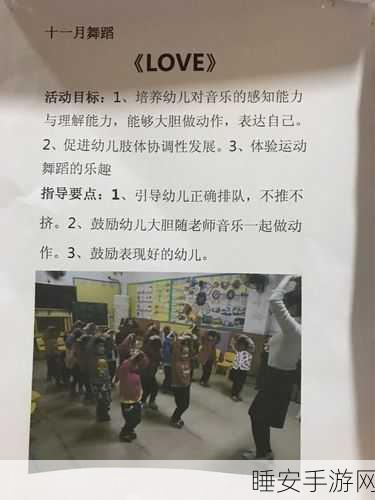 十一月舞蹈
《LOVE》
活动目标：1、培养幼儿对音乐的感知能力
与理解能力，能够大胆做动作，表达自己。
2、促进幼儿肢体协调性发展。3、体验运动
舞蹈的乐趣
指导要点：1、引导幼儿正确排队，不推不
挤。2、鼓励幼儿大胆随老师音乐一起做动
作。3、鼓励表现好的幼儿。
睡安手游网